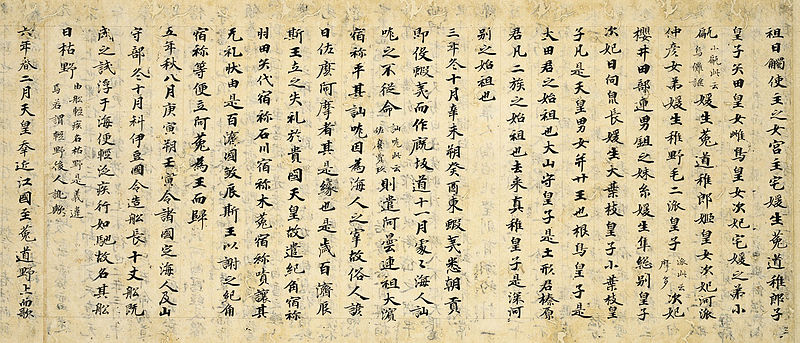 祖日觸使主之女宮主宅媛生菟道稚郎子
皇子矢田皇女雌鳥皇女次妃宅媛之弟小
甂小甂此云烏儺謎媛生菟道稚郎姫皇女次妃河派
仲彦女弟媛生稚野毛二派皇子派此云摩多次妃
櫻井田部連男鉏之妹糸媛生隼総別皇子
次妃日向泉長媛生大葉枝皇子小葉枝皇
子凡是天皇男女并廾王也根鳥皇子是
大田君之始祖也大山守皇子是土形君榛原
君凡二族之始祖也去来真稚皇子是深河
別之始祖也
三年冬十月辛未朔癸酉東蝦夷悉朝貢
即役蝦夷而作厩坂道十一月處々海人訕
哤之不従命訕哤此云佐麼賣玖則遣阿曇連祖大濱
宿祢平其訕哤因為海人之宰故俗人諺
曰佐麼阿摩者其是縁也是歳百濟辰
斯王立之失礼於貴國天皇故遣紀角宿祢
羽田矢代宿祢石川宿祢木菟宿祢嘖讓其
无礼状由是百濟國敦辰斯王以謝之紀角
宿祢等便立阿菀為王而歸
五年秋八月庚寅朔壬寅令諸國定海人及山
守部冬十月科伊豆國令造舩長十丈舩既
成之試浮于海便軽泛疾行如馳故名其舩
曰枯野由舩軽疾名枯野是義違焉若謂軽野後人訛歟
六年春二月天皇幸近江國至菟道野上而歌